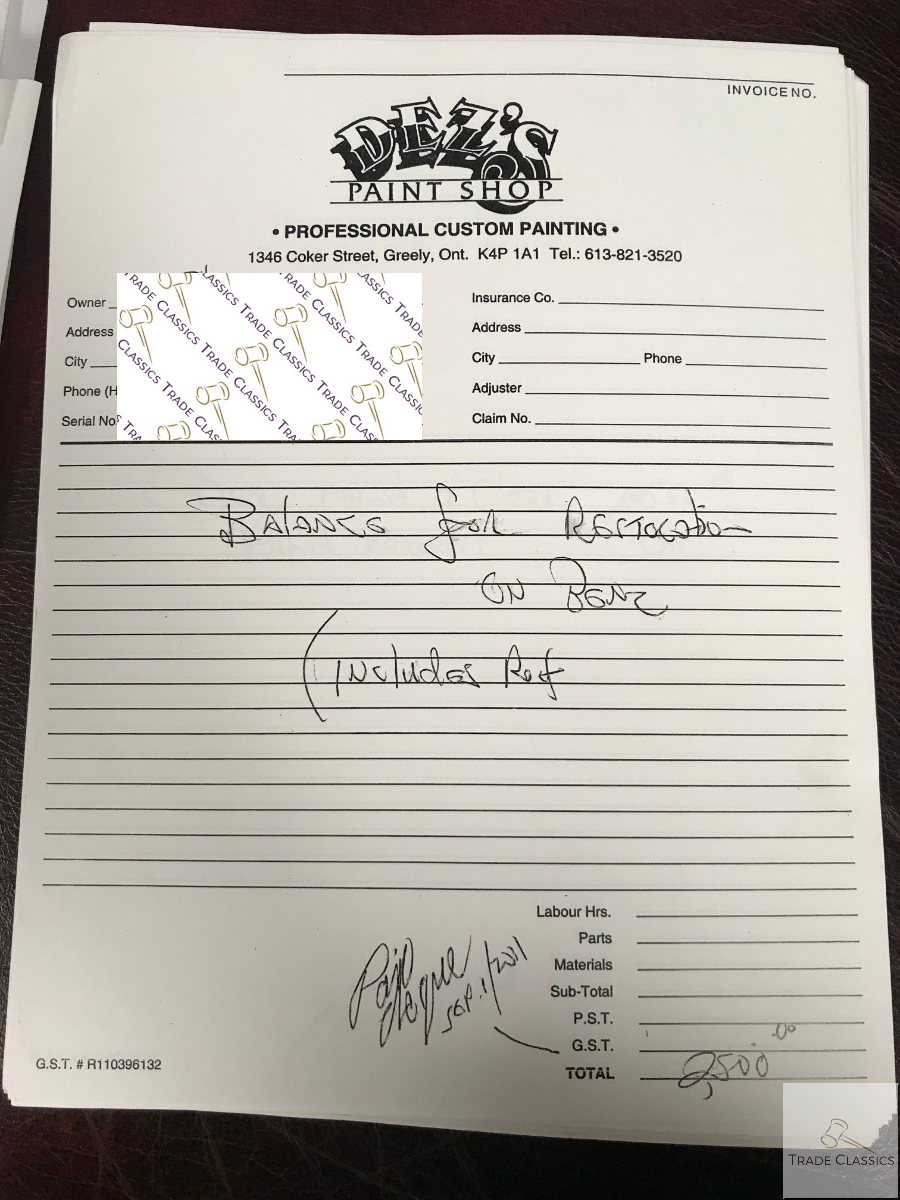 INVOICE NO.
DEZ'S
PAINT SHOP
• PROFESSIONAL CUSTOM PAINTING •
1346 Coker Street, Greely, Ont. K4P 1A1 Tel.: 613-821-3520
Owner
Address
City
Phone (H
Serial No
Insurance Co.
Address
City Phone
Adjuster
Claim No.
TRADE CLASSICS TRADE CLASSICS TRADE CLASSICS
Balance for Restoration
on Benz
(includes Roof
Labour Hrs.
Parts
Materials
Sub-Total
P.S.T.
G.S.T.
TOTAL 2,500.00
Paid
cheque
Sep. 1/2011
G.S.T. # R110396132
TRADE CLASSICS